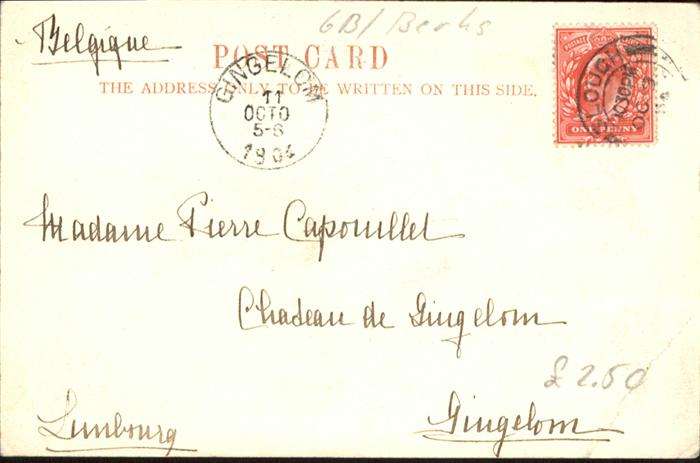 GB/Berks
Belgique
POST CARD
THE ADDRESS ONLY TO BE WRITTEN ON THIS SIDE.
GINGELOM
11
OCTO
5-6
1904
OUGH
10.30PM
OC 9
04
POSTAGE
ONE PENNY
Madame Pierre Capouillet
Chateau de Gingelom
£2.50
Gingelom
Limbourg